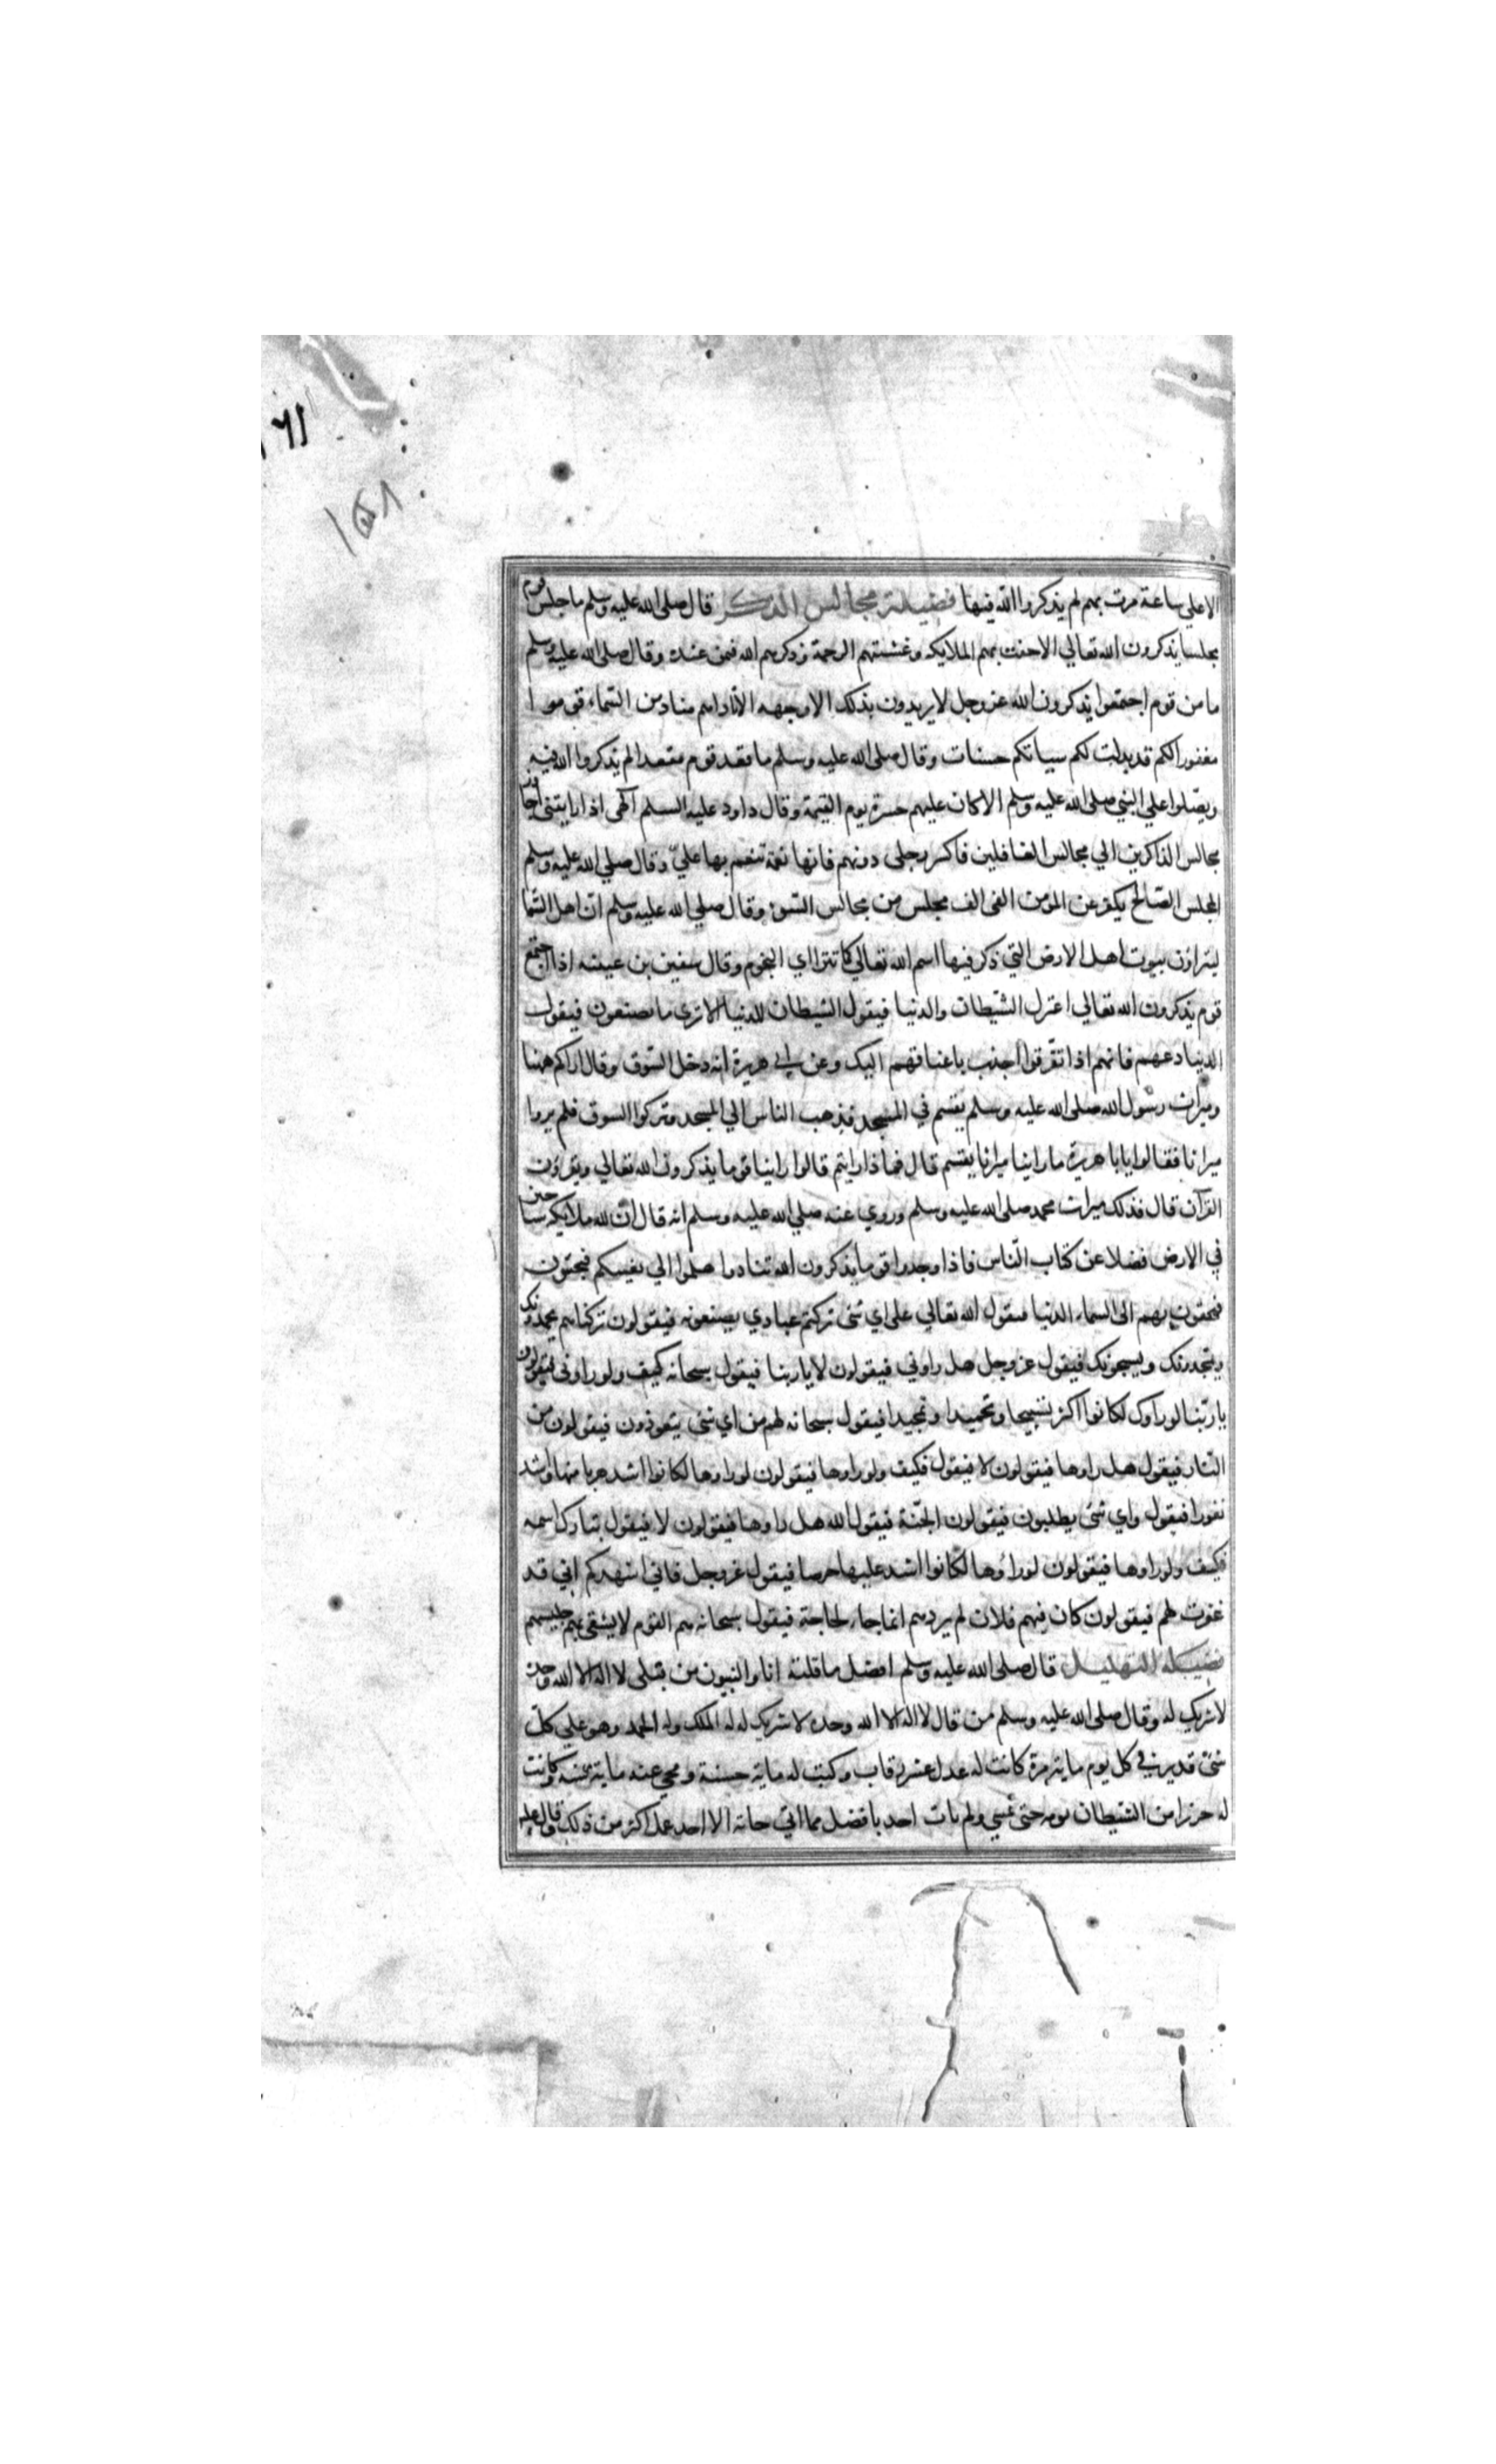 ١٦١
١٥٨
الا علي ساعة مرت بهم لم يذكروا الله فيها فضيلة مجالس الذكر قال صلى الله عليه وسلم ما جلس قوم
مجلسا يذكرون الله تعالي الا حفت بهم الملايكه وغشيتهم الرحمة وذكرهم الله فيمن عنده وقال صلى الله عليه وسلم
ما من قوم اجتمعوا يذكرون الله عز وجل لا يريدون بذلك الا وجهه الا ناداهم مناد من السماء قوموا
مغفورا لكم قد بدلت لكم سياتكم حسنات وقال صلى الله عليه وسلم ما قعد قوم مقعدا لم يذكروا الله فيه
ويصلوا علي النبي صلى الله عليه وسلم الا كان عليهم حسرة يوم القيمة وقال داود عليه السلم الهى اذا رايتنى اجاوز
مجالس الذاكرين الي مجالس الغافلين فاكسر رجلى دونهم فانها نعمة تنعم بها عليّ وقال صلي الله عليه وسلم
المجلس الصالح يكفر عن المؤمن الفى الف مجلس من مجالس السوء وقال صلي الله عليه وسلم ان اهل السما
ليتراؤن بيوت اهل الارض التي ذكر فيها اسم الله تعالي كما تترااي النجوم وقال سفين بن عيينه اذا اجتمع
قوم يذكرون الله تعالي اعتزل الشيطان والدنيا فيقول الشيطان للدنيا الا تري ما يصنعون فيقول
الدنيا دعهم فانهم اذا تفرقوا اجذب باعناقهم اليك وعن ابي هريرة انه دخل السوق وقال اراكم ههنا
وميراث رسول الله صلى الله عليه وسلم يقسم في المسجد فذهب الناس الي المسجد وتركوا السوق فلم يروا
ميراثا فقالوا يابا هريرة ما راينا ميراثا يقسم قال فماذا رايتم قالوا راينا قوما يذكرون الله تعالي ويقرؤن
القرآن قال فذلك ميراث محمد صلى الله عليه وسلم وروي عنه صلي الله عليه وسلم انه قال ان لله ملايكه سياحين
في الارض فضلا عن كتاب الناس فاذا وجدوا قوما يذكرون الله تنادوا هلموا الي بغيتكم فيجئون
فيحفون بهم الى السماء الدنيا فيقول الله تعالي علي اي شئ تركتم عبادي يصنعونه فيقولون تركناهم يحمدونك
ويمجدونك ويسبحونك فيقول عز وجل هل راوني فيقولون لا ياربنا فيقول سبحانه كيف ولو راونى فيقولون
ياربّنا لو راوك لكانوا اكثر تسبيحا وتحميدا وتمجيدا فيقول سبحانه لهم من اي شئ يتعوذون فيقولون من
النار فيقول هل راوها فيقولون لا فيقول فكيف ولو راوها فيقولون لو راوها لكانوا اشد هربا منها واشد
نفورا فيقول واي شئ يطلبون فيقولون الجنة فيقول الله هل راوها فيقولون لا فيقول تبارك اسمه
فكيف ولو راوها فيقولون لو راوها لكانوا اشد عليها حرصا فيقول عز وجل فاني اشهدكم اني قد
غفرت لهم فيقولون كان فيهم فلان لم يردهم انما جاء لحاجة فيقول سبحانه هم القوم لا يشقى بهم جليسهم
فضيلة التهليل قال صلى الله عليه وسلم افضل ما قلته انا والنبيون من قبلى لا اله الا الله وحده
لا شريك له وقال صلى الله عليه وسلم من قال لا اله الا الله وحده لا شريك له له الملك وله الحمد وهو علي كل
شئ قدير في كل يوم ماية مرة كانت له عدل عشر رقاب وكتبت له ماية حسنة ومحي عنه ماية سيئة وكانت
له حرزا من الشيطان يومه حتى يمسي ولم يات احد بافضل مما اتي به الا احد عمل اكثر من ذلك وقال عليه